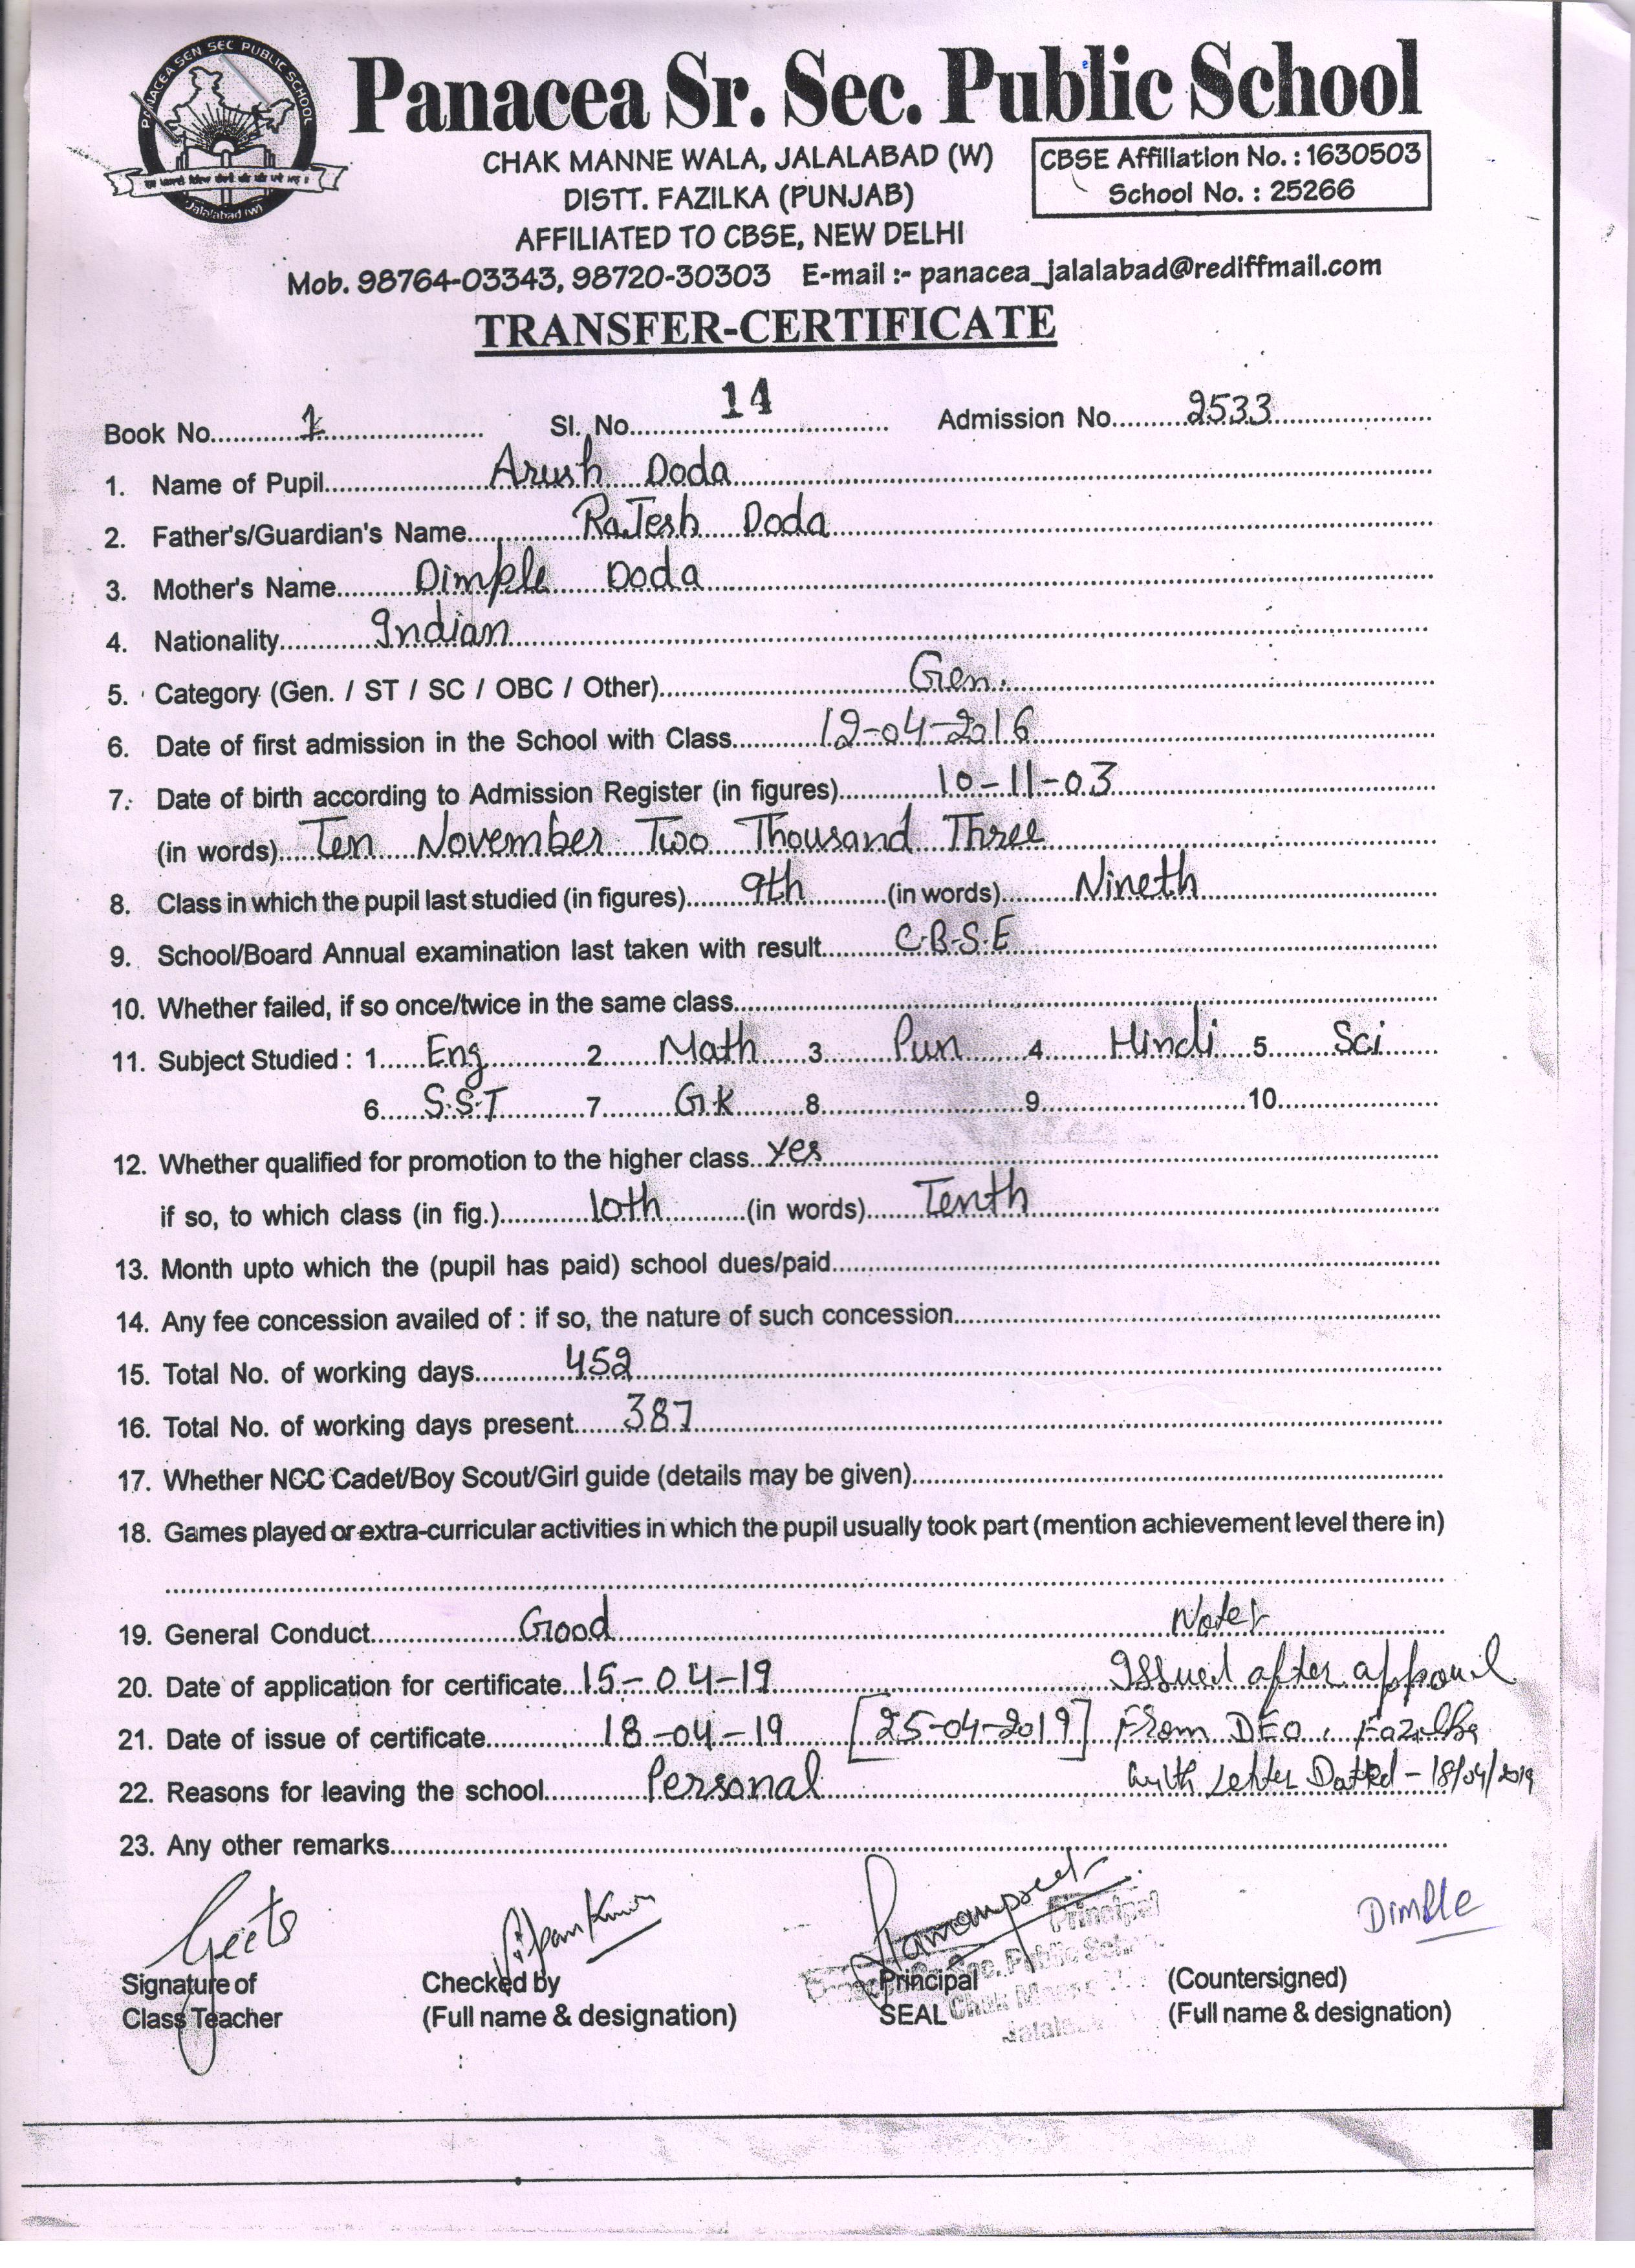 PANACEA SEN SEC PUBLIC SCHOOL
Jalalabad (W)
Panacea Sr. Sec. Public School
CHAK MANNE WALA, JALALABAD (W)
DISTT. FAZILKA (PUNJAB)
AFFILIATED TO CBSE, NEW DELHI
CBSE Affiliation No. : 1630503
School No. : 25266
Mob. 98764-03343, 98720-30303 E-mail :- panacea_jalalabad@rediffmail.com
TRANSFER-CERTIFICATE
Book No. 1 Sl. No. 14 Admission No. 2533
1. Name of Pupil Arush Doda
2. Father's/Guardian's Name RaJesh Doda
3. Mother's Name Dimple Doda
4. Nationality Indian
5. Category (Gen. / ST / SC / OBC / Other) Gen.
6. Date of first admission in the School with Class 12-04-2016
7. Date of birth according to Admission Register (in figures) 10-11-03
(in words) Ten November Two Thousand Three
8. Class in which the pupil last studied (in figures) 9th (in words) Nineth
9. School/Board Annual examination last taken with result C.B.S.E
10. Whether failed, if so once/twice in the same class
11. Subject Studied : 1 Eng 2 Math 3 Pun 4 Hindi 5 Sci
6 S.S.T 7 G.K 8 9 10
12. Whether qualified for promotion to the higher class Yes
if so, to which class (in fig.) 10th (in words) Tenth
13. Month upto which the (pupil has paid) school dues/paid
14. Any fee concession availed of : if so, the nature of such concession
15. Total No. of working days 452
16. Total No. of working days present 387
17. Whether NCC Cadet/Boy Scout/Girl guide (details may be given)
18. Games played or extra-curricular activities in which the pupil usually took part (mention achievement level there in)
19. General Conduct Good
20. Date of application for certificate 15-04-19 Issued after
21. Date of issue of certificate 18-04-19 [25-04-2019] From DEO, Fazilka
22. Reasons for leaving the school Personal with Letter Dated - 18/04/2019
23. Any other remarks
Geeta
Dimple
Principal
Sec. Public School
Signature of
Class Teacher
Checked by
(Full name & designation)
Principal
SEAL
(Countersigned)
(Full name & designation)